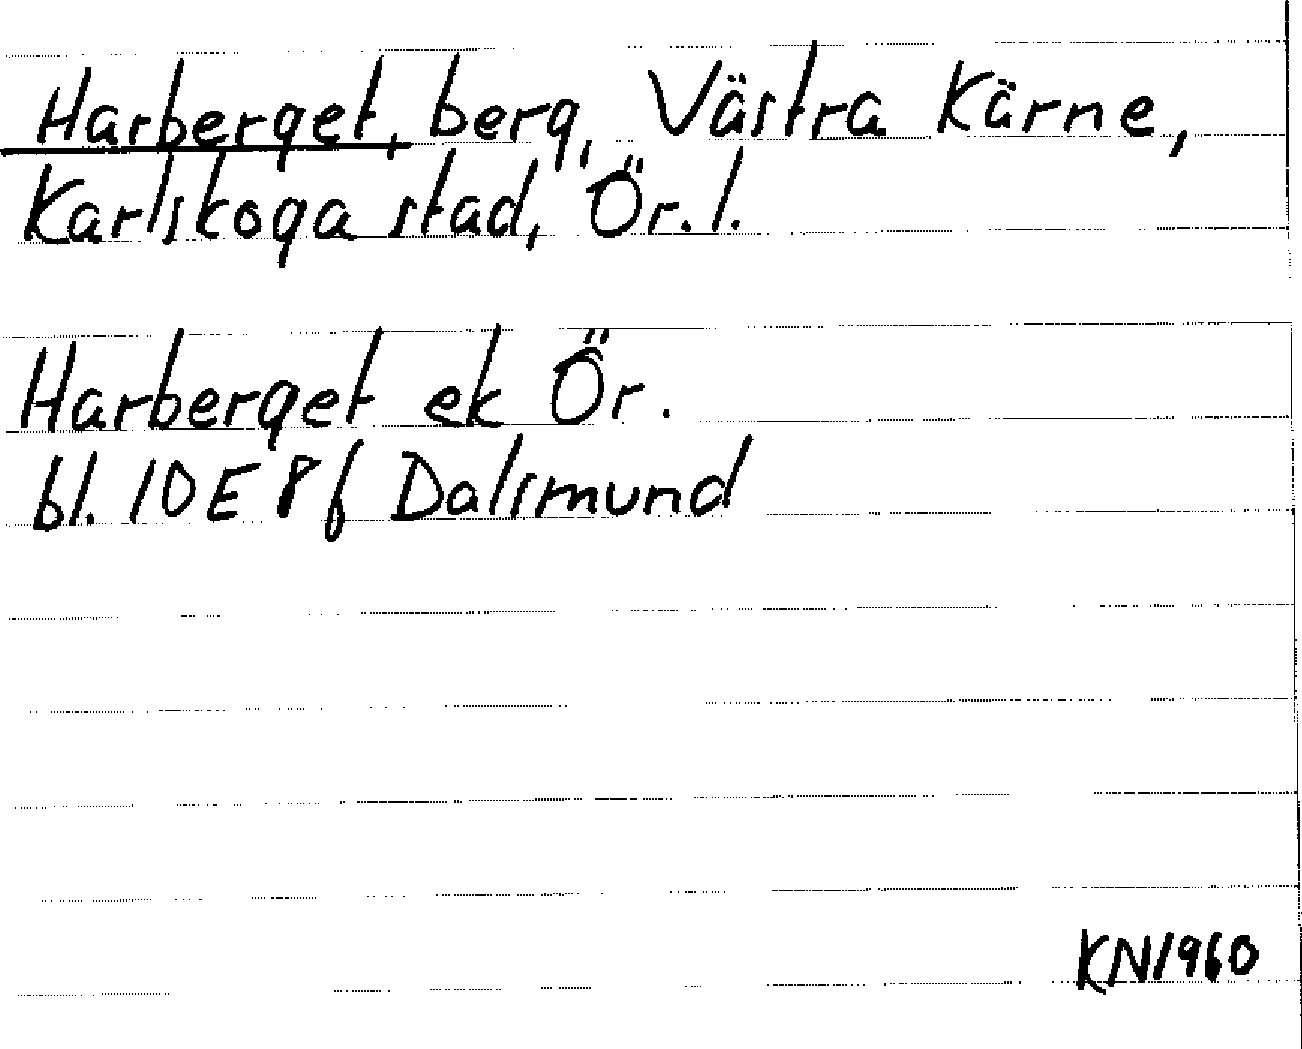 Harberget, berg, Västra Kärne,
Karlskoga stad, Ör. l.
Harberget ek Ör.
bl. 10E 8f Dalsmund
KN1960